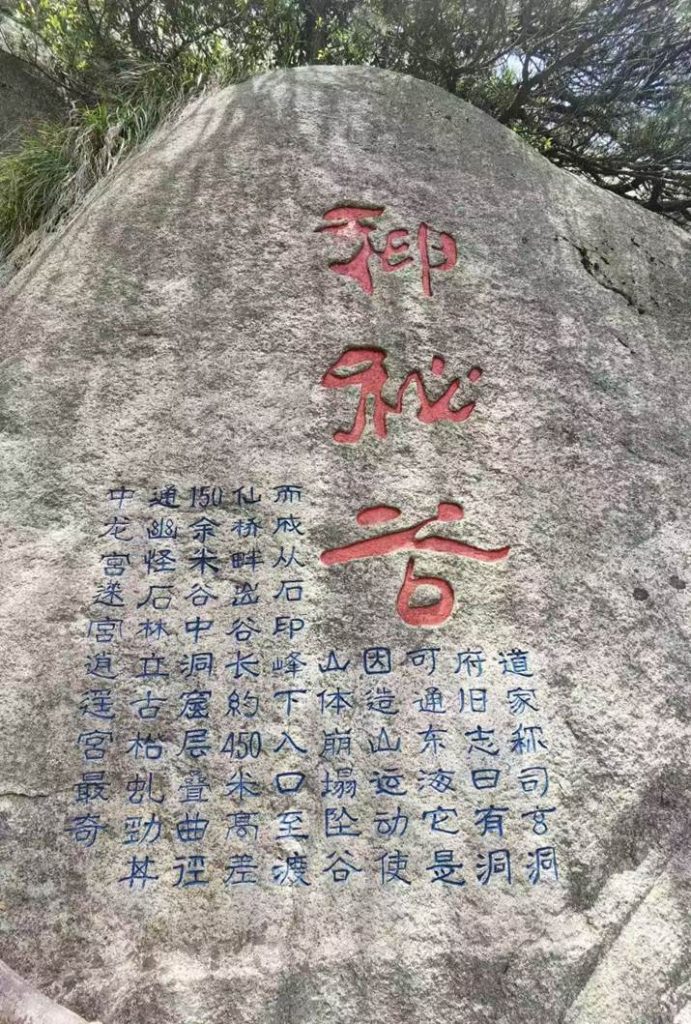 神秘谷
道家称司玄洞
府旧志曰有洞
可通东海它是
因造山运动使
山体崩塌坠谷
而成从石印峰下入口至渡
仙桥畔出谷长約450米高差
150余米谷中洞窟层叠曲徑
通幽怪石林立古松虬勁其
中龙宫迷宫逍遥宫最奇